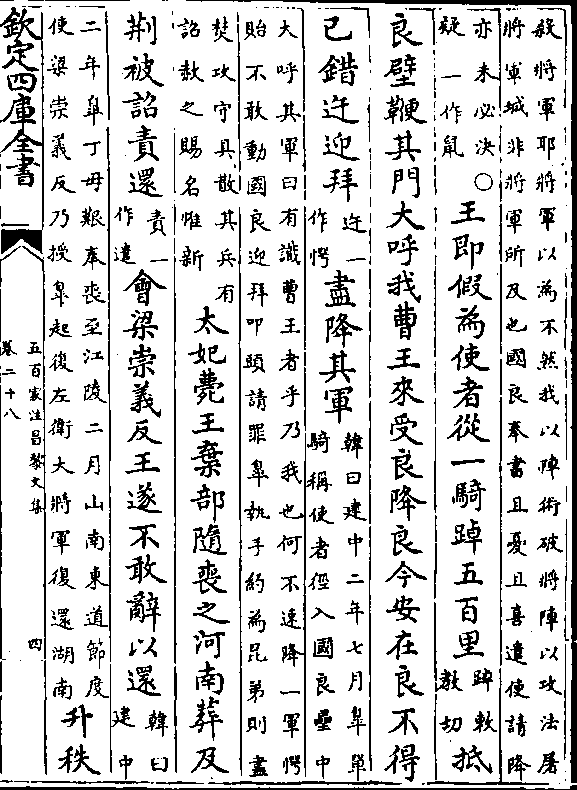 殺將軍耶將軍以為不然我以陣術破將陣以攻法屠
將軍城非將軍所及也國良奉書且憂且喜遣使請降
亦未必決○
疑一作鼠
王即假為使者從一騎踔五百里
踔敕
教切
抵
良壁鞭其門大呼我曹王來受良降良今安在良不得
已錯迕迎拜
迕一
作愕
盡降其軍
韓曰建中二年七月皐單
騎稱使者徑入國良壘中
大呼其軍曰有識曹王者乎乃我也何不速降一軍愕
貽不敢動國良迎拜叩頭請罪皐執手約為昆弟則盡
焚攻守具散其兵有
詔赦之賜名惟新
太妃薨王棄部隨喪之河南葬及
荆被詔責還
責一
作遣
會梁崇義反王遂不敢辭以還
韓曰
建中
二年皐丁母艱奉喪至江陵二月山南東道節度
使梁崇義反乃授皐起復左衛大將軍復還湖南
升秩
欽定四庫全書
五百家注昌黎文集
卷二十八
四